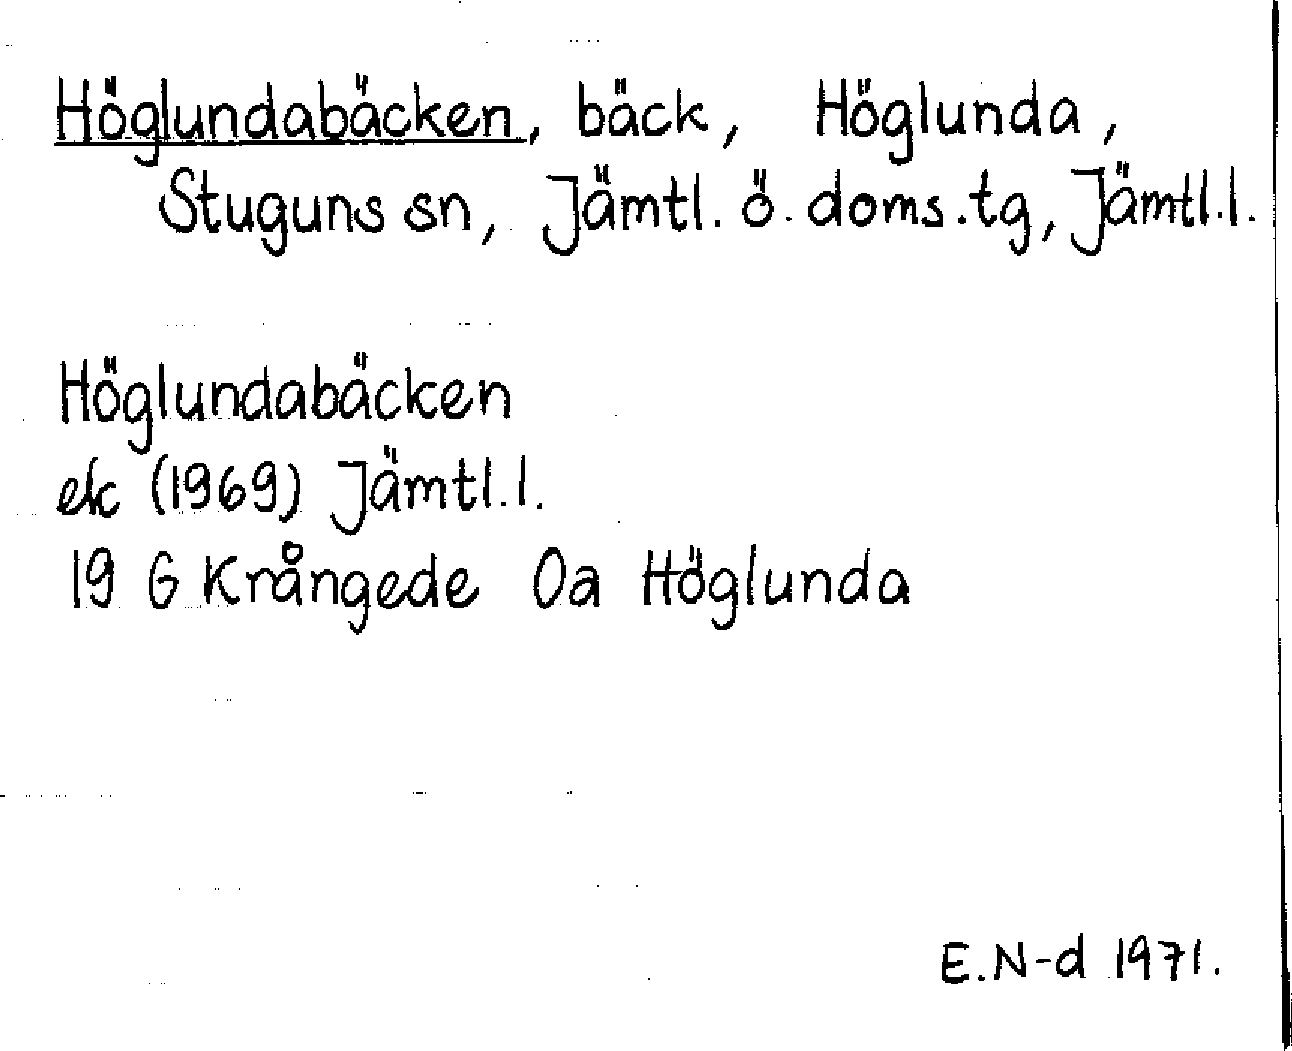 Höglundabäcken, bäck, Höglunda,
Stuguns sn, Jämtl. ö. doms.tg, Jämtl.l.
Höglundabäcken
ek (1969) Jämtl.l.
19 G Krångede 0a Höglunda
E.N-d 1971.